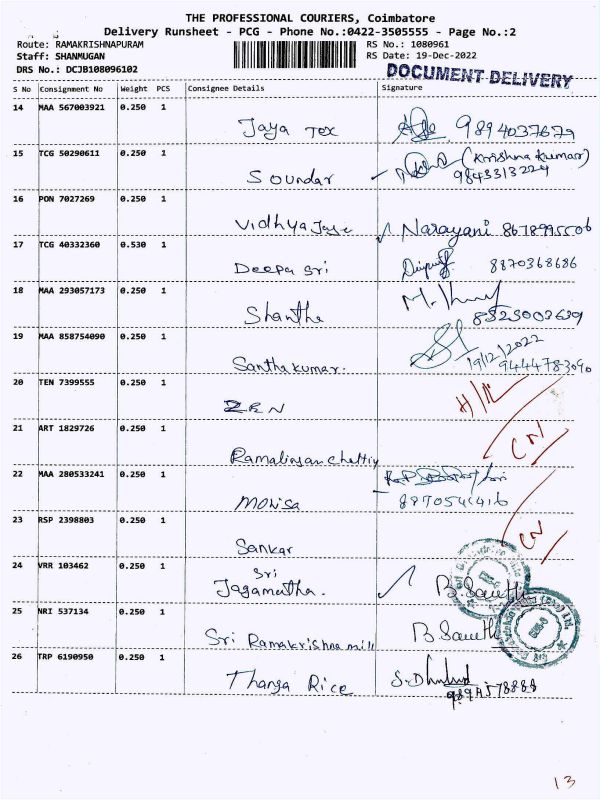 THE PROFESSIONAL COURIERS, Coimbatore
Delivery Runsheet - PCG - Phone No.:0422-3505555 - Page No.:2
Route: RAMAKRISHNAPURAM RS No.: 1080961
Staff: SHANMUGAN RS Date: 19-Dec-2022
DRS No.: DCJB108096102 DOCUMENT DELIVERY
S No Consignment No Weight PCS Consignee Details Signature
14 MAA 567003921 0.250 1
Jaya Tex 9894037679
15 TCG 50290611 0.250 1
(Krishna Kumar)
Soundar 9843313224
16 PON 7027269 0.250 1
Vidhya Narayani
17 TCG 40332360 0.530 1
Deepa Sri 8870368686
18 MAA 293057173 0.250 1
Shantha
19 MAA 858754090 0.250 1
19/12/2022
Santhakumar. 9444783090
20 TEN 7399555 0.250 1
ZEN
21 ART 1829726 0.250 1
CN
Ramalingan Chettiy
22 MAA 280533241 0.250 1
Monisa
23 RSP 2398803 0.250 1
CN
Sankar
24 VRR 103462 0.250 1
Sri
Jaganatha.
25 NRI 537134 0.250 1
Sri Ramakrishna mill
26 TRP 6190950 0.250 1
Thanga Rice
13